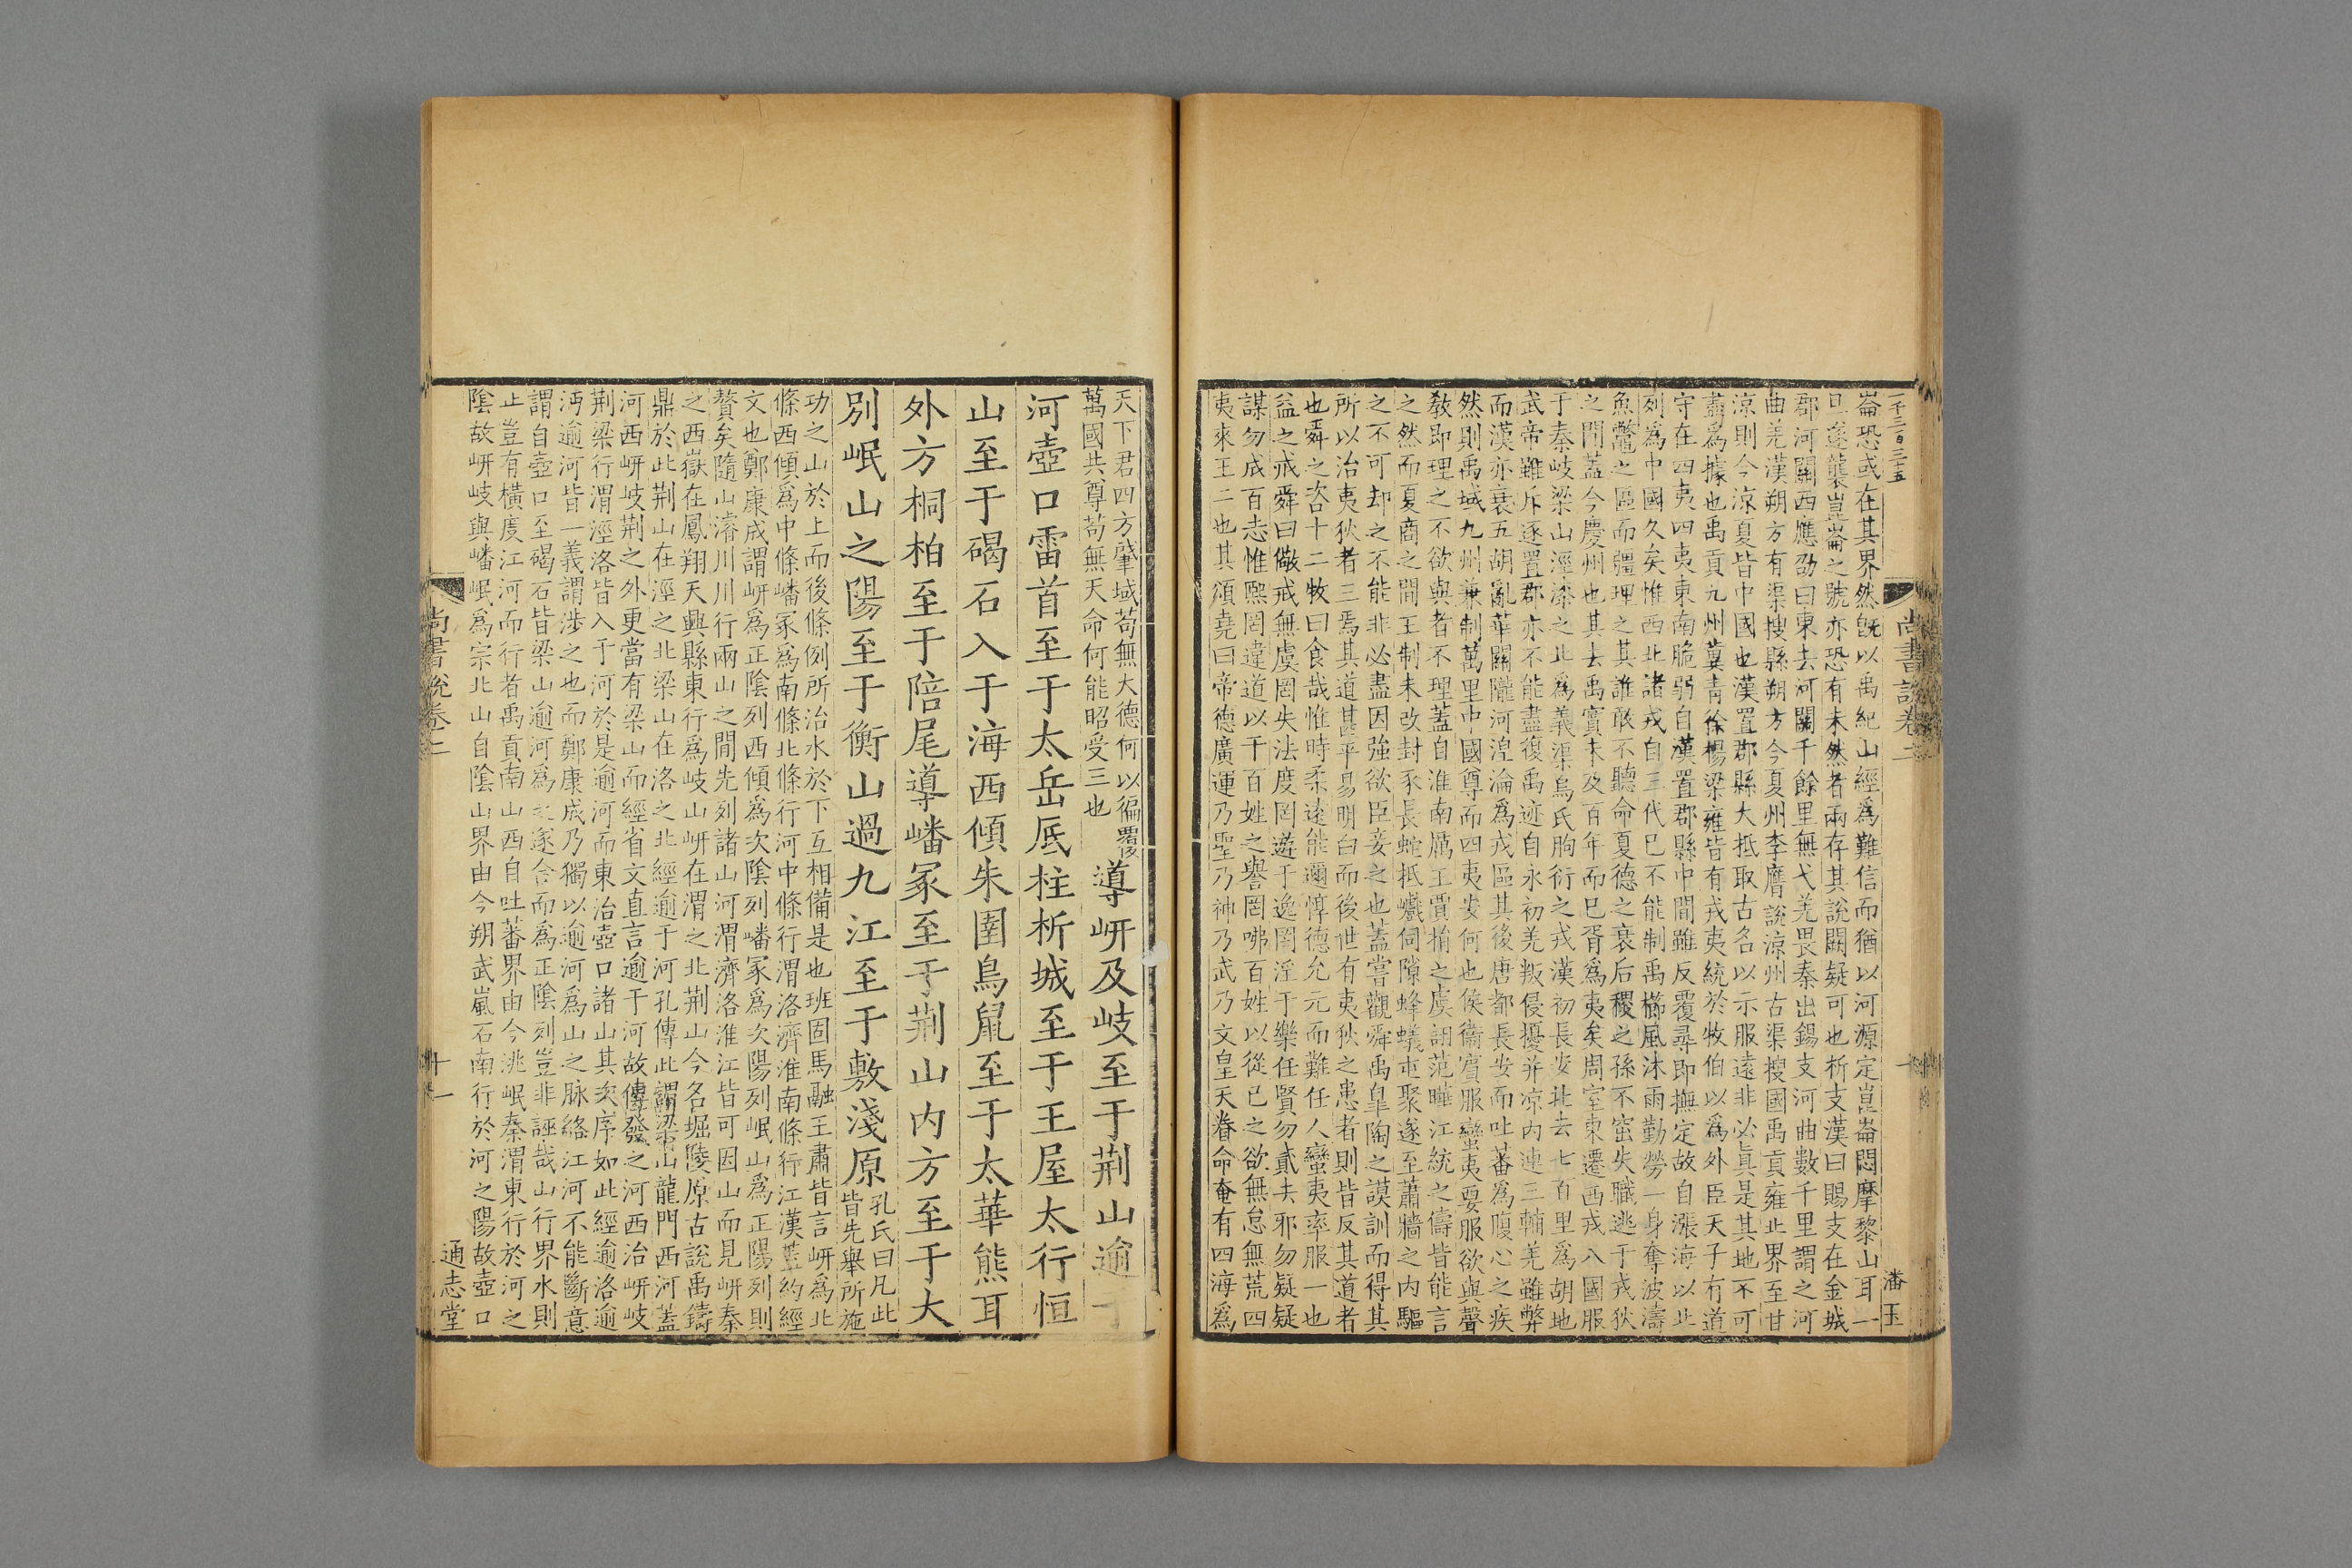 一千三百三十五
尚書說卷二
十
潘玉
崙恐或在其界然旣以禹紀山經爲難信而猶以河源定崑崙悶摩黎山耳一
旦遂襲崑崙之號亦恐有未然者兩存其說闕疑可也析支漢曰賜支在金城
郡河關西應劭曰東去河關千餘里無弋羌畏秦出錫支河曲數千里謂之河
曲羌漢朔方有渠搜縣朔方今夏州李譍說涼州古渠搜國禹貢雍止界至甘
涼則今涼夏皆中國也漢置郡縣大抵取古名以示服遠非必眞是其地不可
盡爲據也禹貢九州冀青徐楊梁雍皆有戎夷統於牧伯以爲外臣天子有道
守在四夷四夷東南脆弱自漢置郡縣中間雖反覆尋即撫定故自漲海以北
列爲中國久矣惟西北諸戎自三代已不能制禹櫛風沐雨勤勞一身奪波濤
魚鼈之區而疆理之其誰敢不聽命夏德之衰后稷之孫不窋失職逃于戎狄
之間蓋今慶州也其去禹實未及百年而已胥爲夷矣周室東遷西戎入國服
于秦岐梁山涇漆之北爲義渠烏氏朐衍之戎漢初長安北去七百里爲胡地
武帝雖斥逐置郡亦不能盡復禹迹自永初羌叛侵擾并涼内連三輔羌雖弊
而漢亦衰五胡亂華關隴河湟淪爲戎區其後唐都長安而吐蕃爲腹心之疾
然則禹域九州兼制萬里中國尊而四夷安何也侯衞賓服蠻夷要服欲與聲
敎即理之不欲與者不理蓋自淮南厲王賈捐之虞詡范曄江統之儔皆能言
之然而夏商之間王制未改封豕長蛇抵巇伺隙蜂蟻屯聚遂至蕭牆之内驅
之不可却之不能非必盡因強欲臣妾之也蓋嘗觀舜禹皐陶之謨訓而得其
所以治夷狄者三焉其道甚平易明白而後世有夷狄之患者則皆反其道者
也舜之咨十二牧曰食哉惟時柔遠能邇惇德允元而難任人蠻夷率服一也
益之戒舜曰儆戒無虞罔失法度罔遊于逸罔淫于樂任賢勿貳去邪勿疑疑
謀勿成百志惟熙罔違道以干百姓之譽罔咈百姓以從己之欲無怠無荒四
夷來王二也其頌堯曰帝德廣運乃聖乃神乃武乃文皇天眷命奄有四海爲
天下君四方肇域苟無大德何以徧覆
萬國共尊苟無天命何能昭受三也
導岍及岐至于荆山逾于
河壺口雷首至于太岳厎柱析城至于王屋太行恒
山至于碣石入于海西傾朱圉鳥鼠至于太華熊耳
外方桐柏至于陪尾導嶓冢至于荆山内方至于大
別岷山之陽至于衡山過九江至于敷淺原
孔氏曰凡此
皆先舉所施
功之山於上而後條例所治水於下互相備是也班固馬融王肅皆言岍爲北
條西傾爲中條嶓冢爲南條北條行河中條行渭洛濟淮南條行江漢蓋約經
文也鄭康成謂岍爲正陰列西傾爲次陰列嶓冢爲次陽列岷山爲正陽列則
贅矣隨山濬川川行兩山之間先列諸山河渭濟洛淮江皆可因山而見岍秦
之西嶽在鳳翔天興縣東行爲岐山岍在渭之北荆山今名堀陵原古說禹鑄
鼎於此荆山在涇之北梁山在洛之北經逾于河孔傳此謂梁山龍門西河蓋
河西岍岐荆之外更當有梁山而經省文直言逾于河故傳發之河西治岍岐
荆梁行渭涇洛皆入于河於是逾河而東治壺口諸山其次序如此經逾洛逾
沔逾河皆一義謂涉之也而鄭康成乃獨以逾河爲山之脉絡江河不能斷意
謂自壺口至碣石皆梁山逾河爲之遂合而爲正陰列豈非誣哉山行界水則
止豈有橫度江河而行者禹貢南山西自吐蕃界由今洮岷秦渭東行於河之
陰故岍岐與嶓岷爲宗北山自陰山界由今朔武嵐石南行於河之陽故壺口
尚書說卷二
十一
通志堂